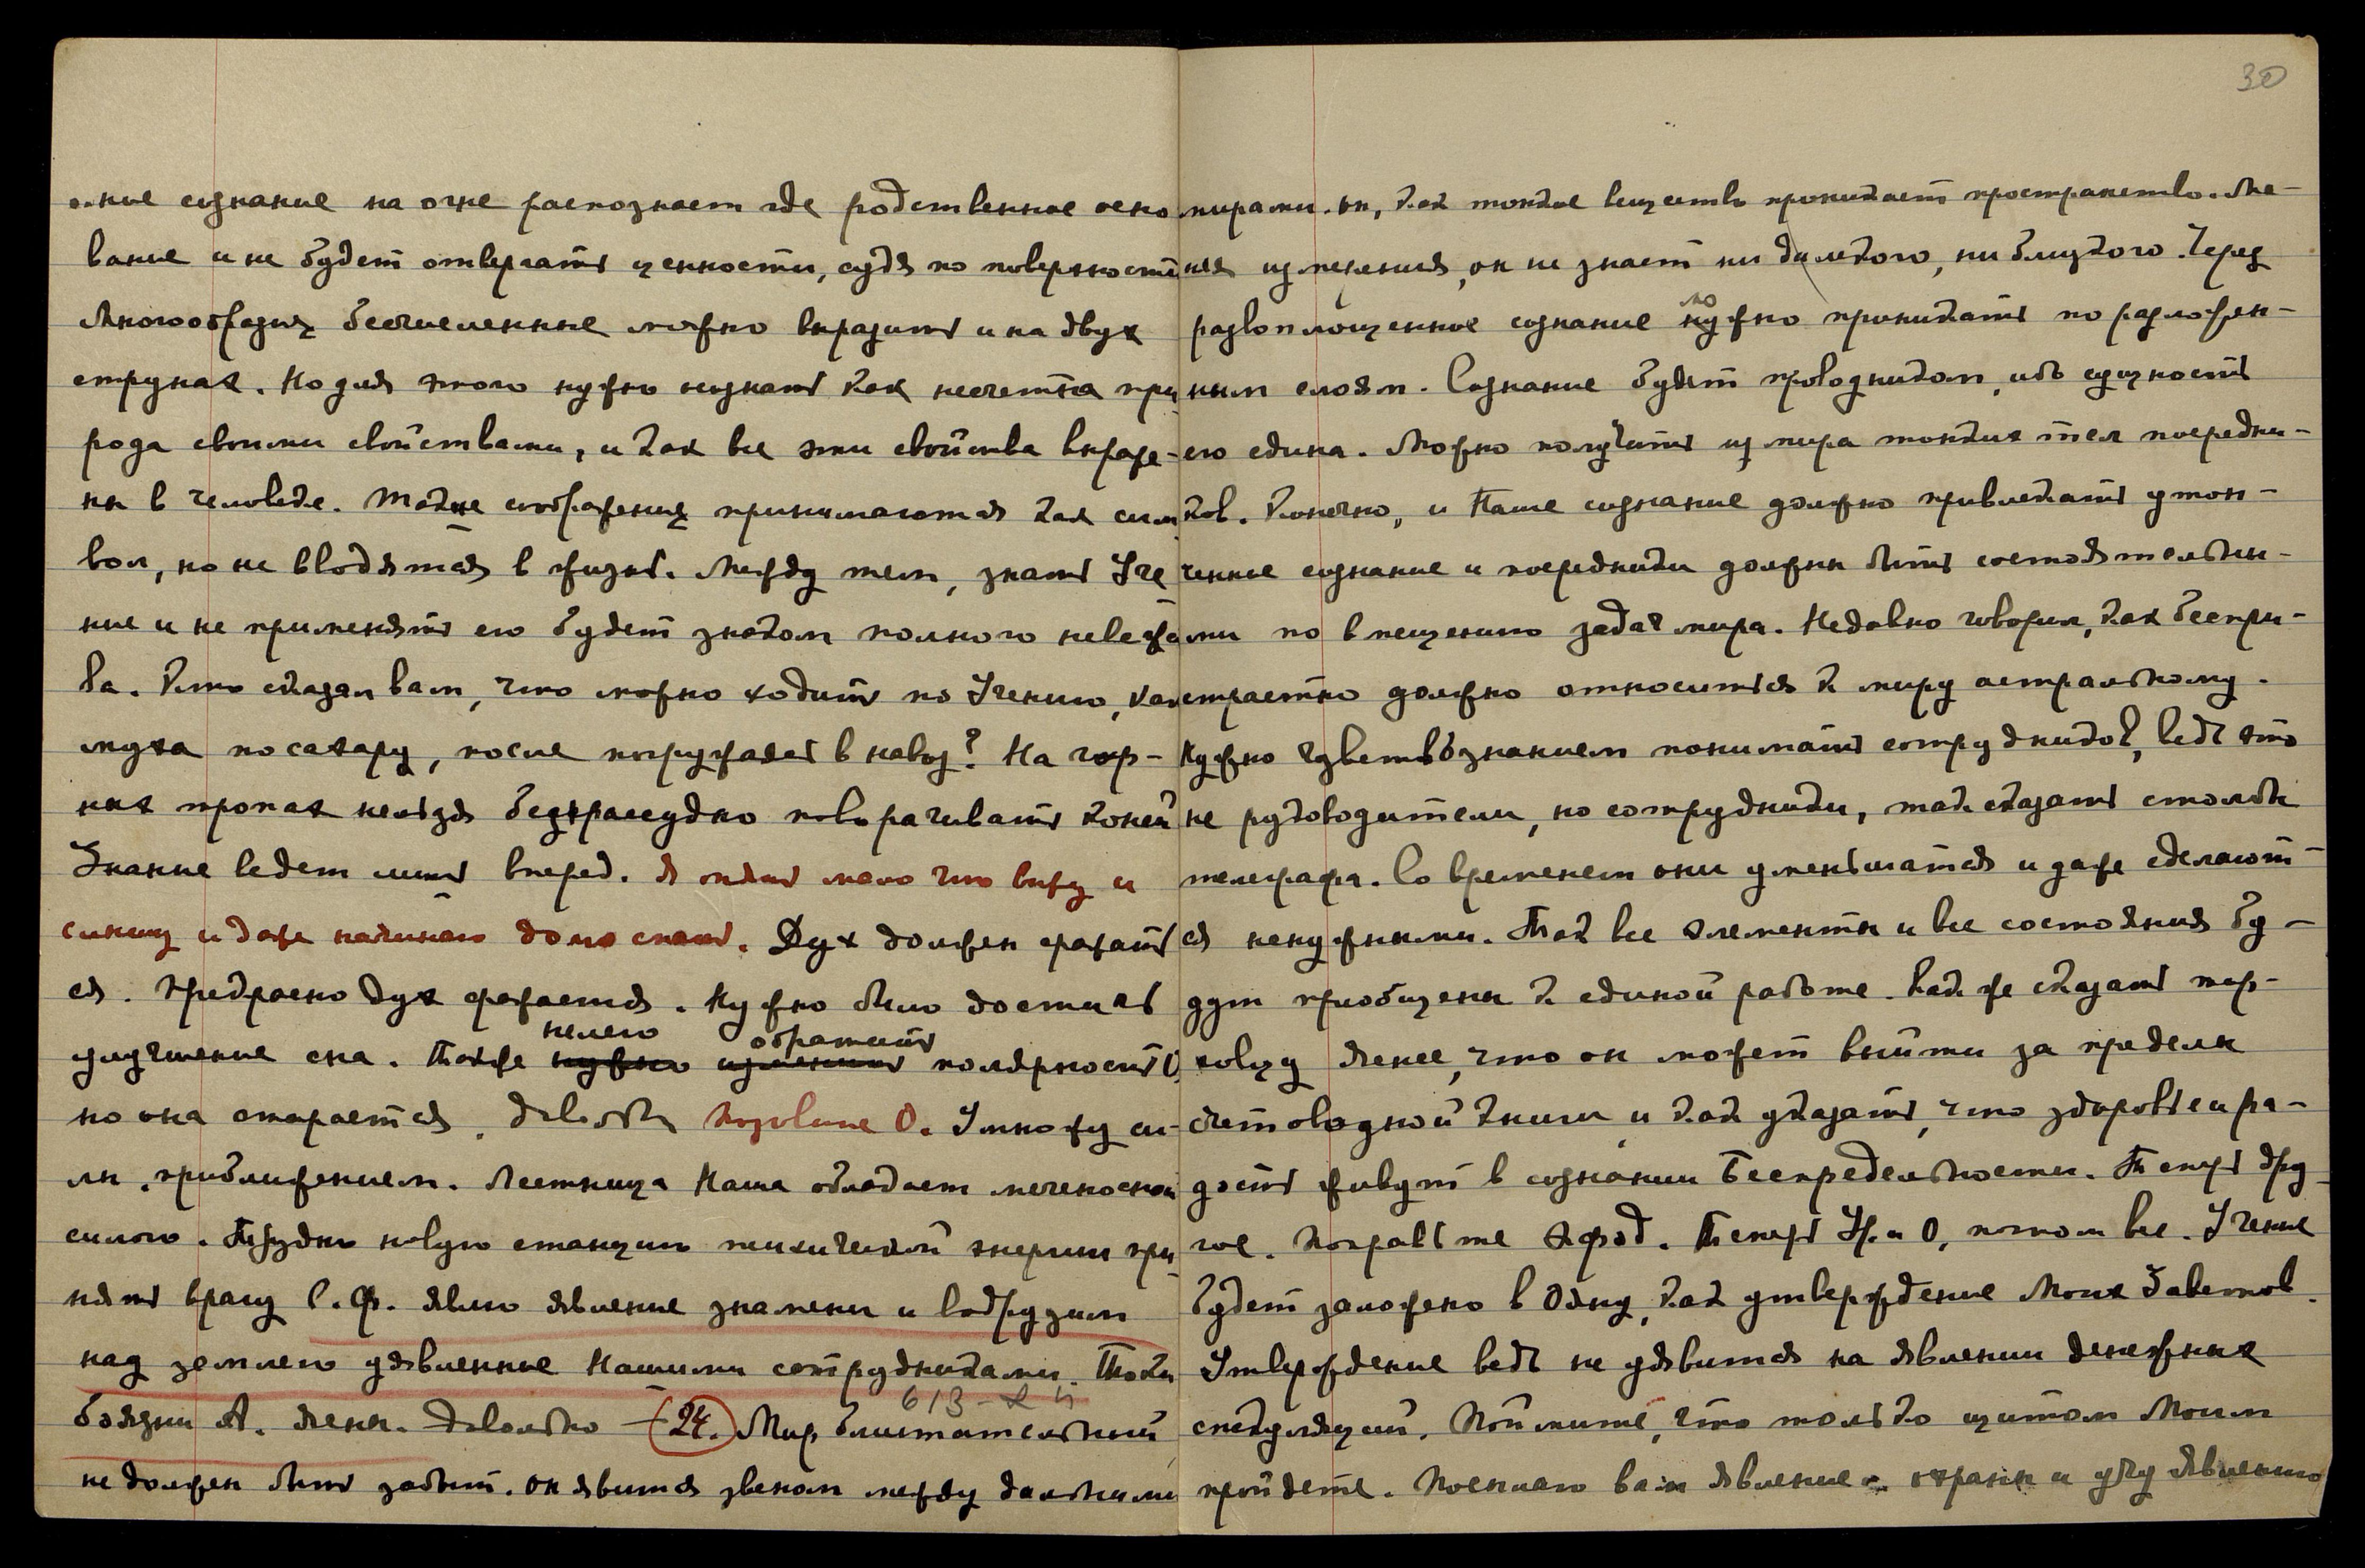 30
ние сознание на огне распознает где родственное осно
вание и не будет отвергать ценности, судя по поверхности
Многообразия бесчисленные можно выразить и на двух
струнах. Но для этого нужно познать как несчетна при
рода своими свойствами, и как все эти свойства выраже-
ны в человеке. Такие соображения принимаются как сим
вол, но не вводятся в жизнь. Между тем, знать Уче
ние и не применять его будет знаком полного невеже
ва. Кто сказал вам, что можно ходить по Учению, как
муха по сахару, после погружаясь в навоз? На гор-
ных тропах нельзя безрассудно поворачивать коней
Знание ведет лишь вперед. Я опять мало что вижу и
слышу и даже начинаю дома спать. Дух должен сражать
ся. Прекрасно дух сражается. Нужно было достичь
улучшение сна. Также нелегко обратить полярность О,
но она старается. Довольно Позовите О. Умножу си-
лы приближением. Лестница Наша обладает меченосной
силою. Трудно новую станцию психической энергии при
нять врагу С. Ф. Явлю явление знамени и водрузим
над землею уявленные Нашими сотрудниками. Токи
боязни А. Яенн. Довольно — 24. Мир блистательный
613-
не должен быть забыт. Он явится звеном между дальними
мирами. Он, как тонкое вещество проникает пространство. Ме-
няя измерения, он не знает ни далекого, ни близкого. Через
развоплощенное сознание можно проникать по разложен-
ным слоям. Сознание будет проводником, ибо сущность
его едина. Можно получить из мира тонких тел посредни-
ков. Конечно, и Наше сознание должно привлекать утон-
ченное сознание и посредники должны быть состоятельны-
ми по вмещению задач мира. Недавно говорил, как беспри-
страстно должно относиться к миру астральному.
Нужно чувствознанием понимать сотрудников, ведь это
не руководители, но сотрудники, так сказать столбы
телеграфа. Со временем они уменьшатся и даже сделают-
ся ненужными. Так все элементы и все состояния бу-
дут приобщены к единой работе. Как же сказать тор-
говцу яенее, что он может выйти за пределы
счетоводной книги и как указать, что здоровье и ра-
дость живут в сознании Беспредельности. Теперь дру-
гое. Поправьте Яфод. Теперь Ур. и О, потом все. Учение
будет заложено в Ояну, как утверждение Моих Заветов.
Утверждение ведь не удивится на явлении денежных
спекуляций. Поймите, что только щитом Моим
пройдете. Посылаю вам явление охраны и учу явлению